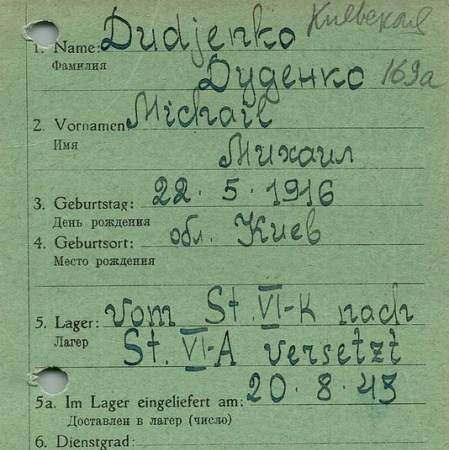 1. Name: Dudjenko Киевская
Фамилия Дуденко 169а
2. Vornamen: Michail
Имя Михаил
3. Geburtstag: 22.5.1916
День рождения
4. Geburtsort: обл. Киев
Место рождения
5. Lager: vom St. VI-K nach
Лагер St. VI-A versetzt
5a. Im Lager eingeliefert am: 20.8.43
Доставлен в лагер (число)
6. Dienstgrad: